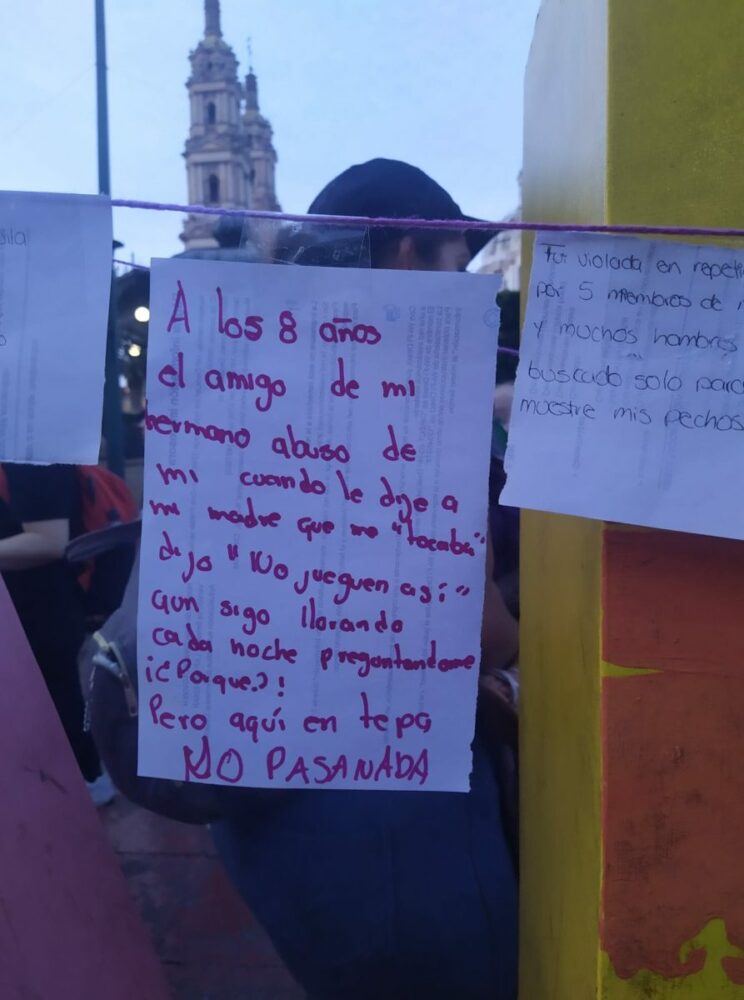 A los 8 años
el amigo de mi
hermano abuso de
mi cuando le dije a
mi madre que me "tocaba"
dijo "No jueguen así"
aun sigo llorando
cada noche pregontandome
¡¿Porque?!
Pero aquí en tepa
NO PASA NADA
Fui violada en
por 5 miembros de
y muchos hombres
buscado solo
muestre mis pechos